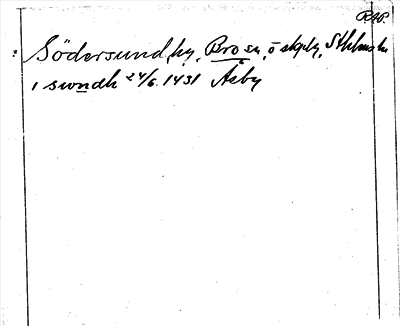 RAP.
: Södersund, by, Bro sn, ö skplg, Sthlms ln
i swndh 24/6 1431 Åsby